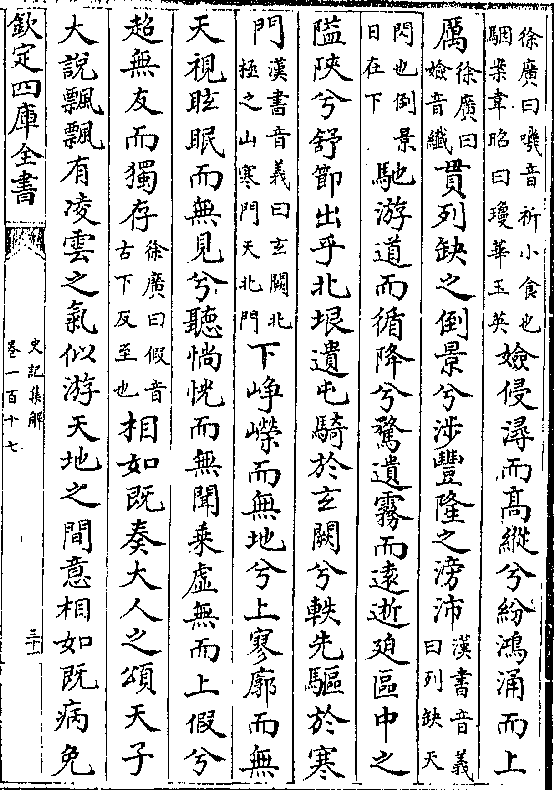 徐廣曰嘰音祈小食也
駰案韋昭曰瓊華玉英
嬐侵潯而髙縱兮紛鴻涌而上
厲
徐廣曰
嬐音纖
貫列缺之倒景兮涉豐隆之滂沛
漢書音義
曰列缺天
閃也倒景
日在下
馳游道而循降兮騖遺霧而逺逝廹區中之
隘陜兮舒節出乎北垠遺屯騎於玄闕兮軼先驅於寒
門
漢書音義曰玄闕北
極之山寒門天北門
下崢嶸而無地兮上寥廓而無
天視眩眠而無見兮聽惝恍而無聞乗虛無而上假兮
超無友而獨存
徐廣曰假音
古下反至也
相如既奏大人之頌天子
大說飄飄有凌雲之氣似游天地之間意相如既病免
欽定四庫全書
史記集解
卷一百十七
三十